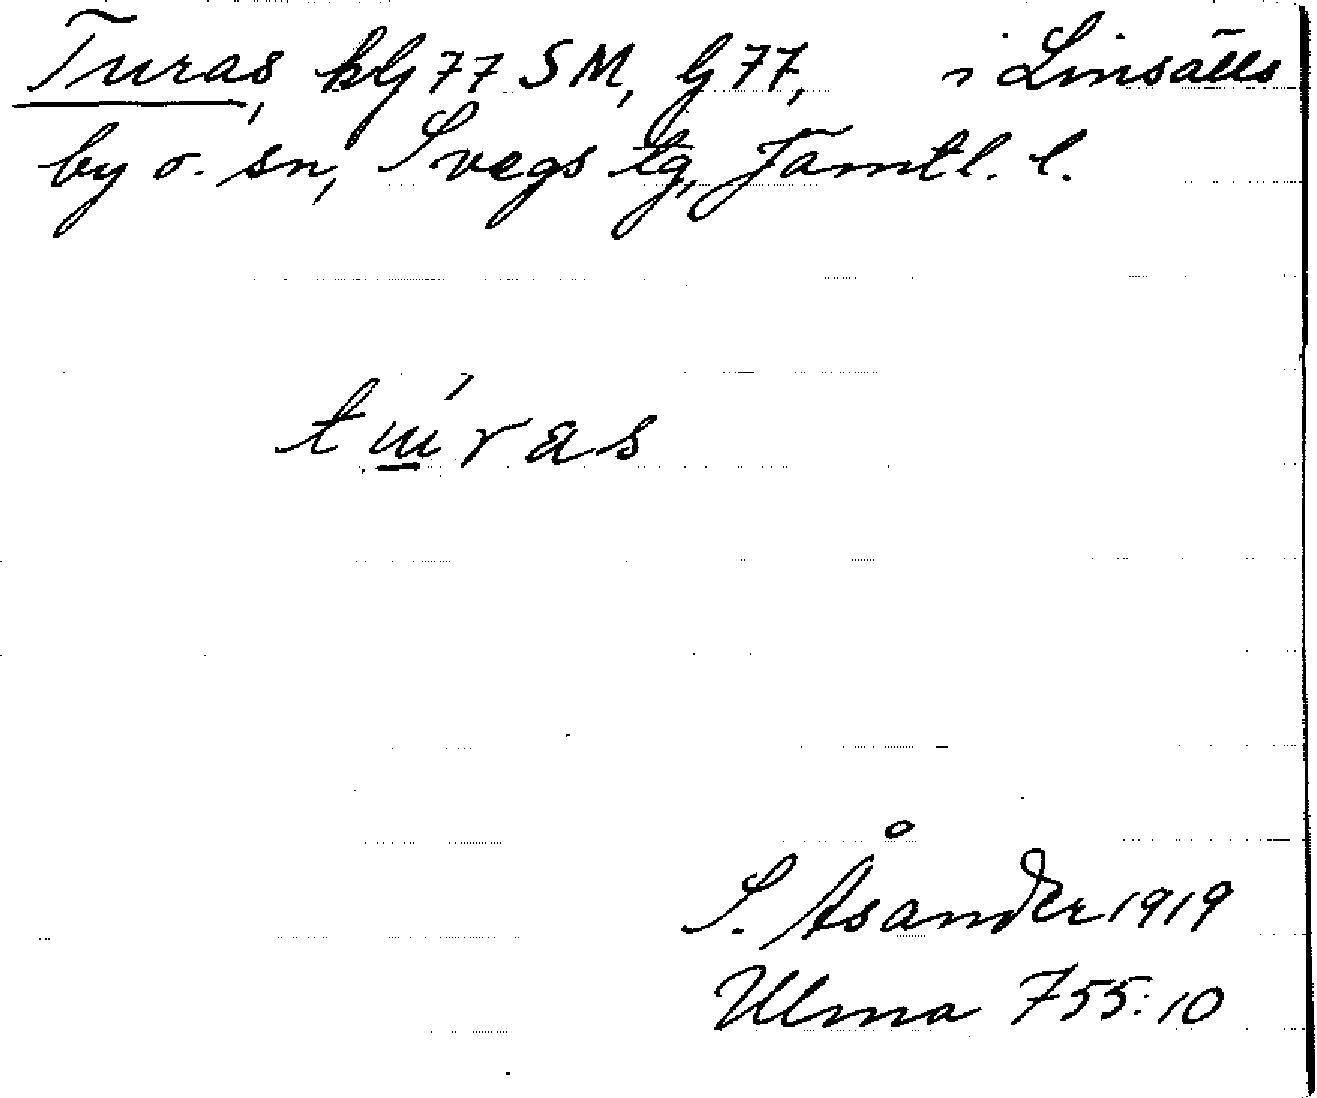 Turas, kG77 SM, G77, i Linsälls
by o. sn, Svegs tg, Jämtl. l.
túras
S. Åsander 1919
Ulma 755:10